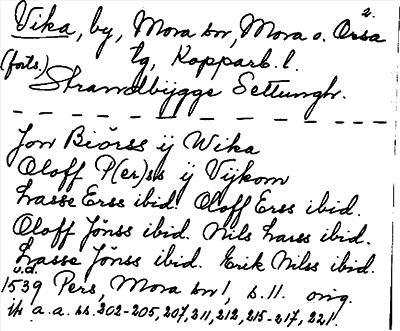 2.
Vika, by, Mora sn, Mora o. Orsa
(forts.) tg, Kopparb. l.
Strandbygge Settungh.
Jon Biörss ij Wika
Oloff P(er)ss ij Vijkom
Lasse Erss ibid. Oloff Erss ibid.
Oloff Jönss ibid. Nils Larss ibid.
Lasse Jönss ibid. Erik Nilss ibid.
u.d.
1539 Pers, Mora sn 1, s. 11. orig.
ib a. a. ss. 202-205, 207, 211, 212, 215-217, 221.